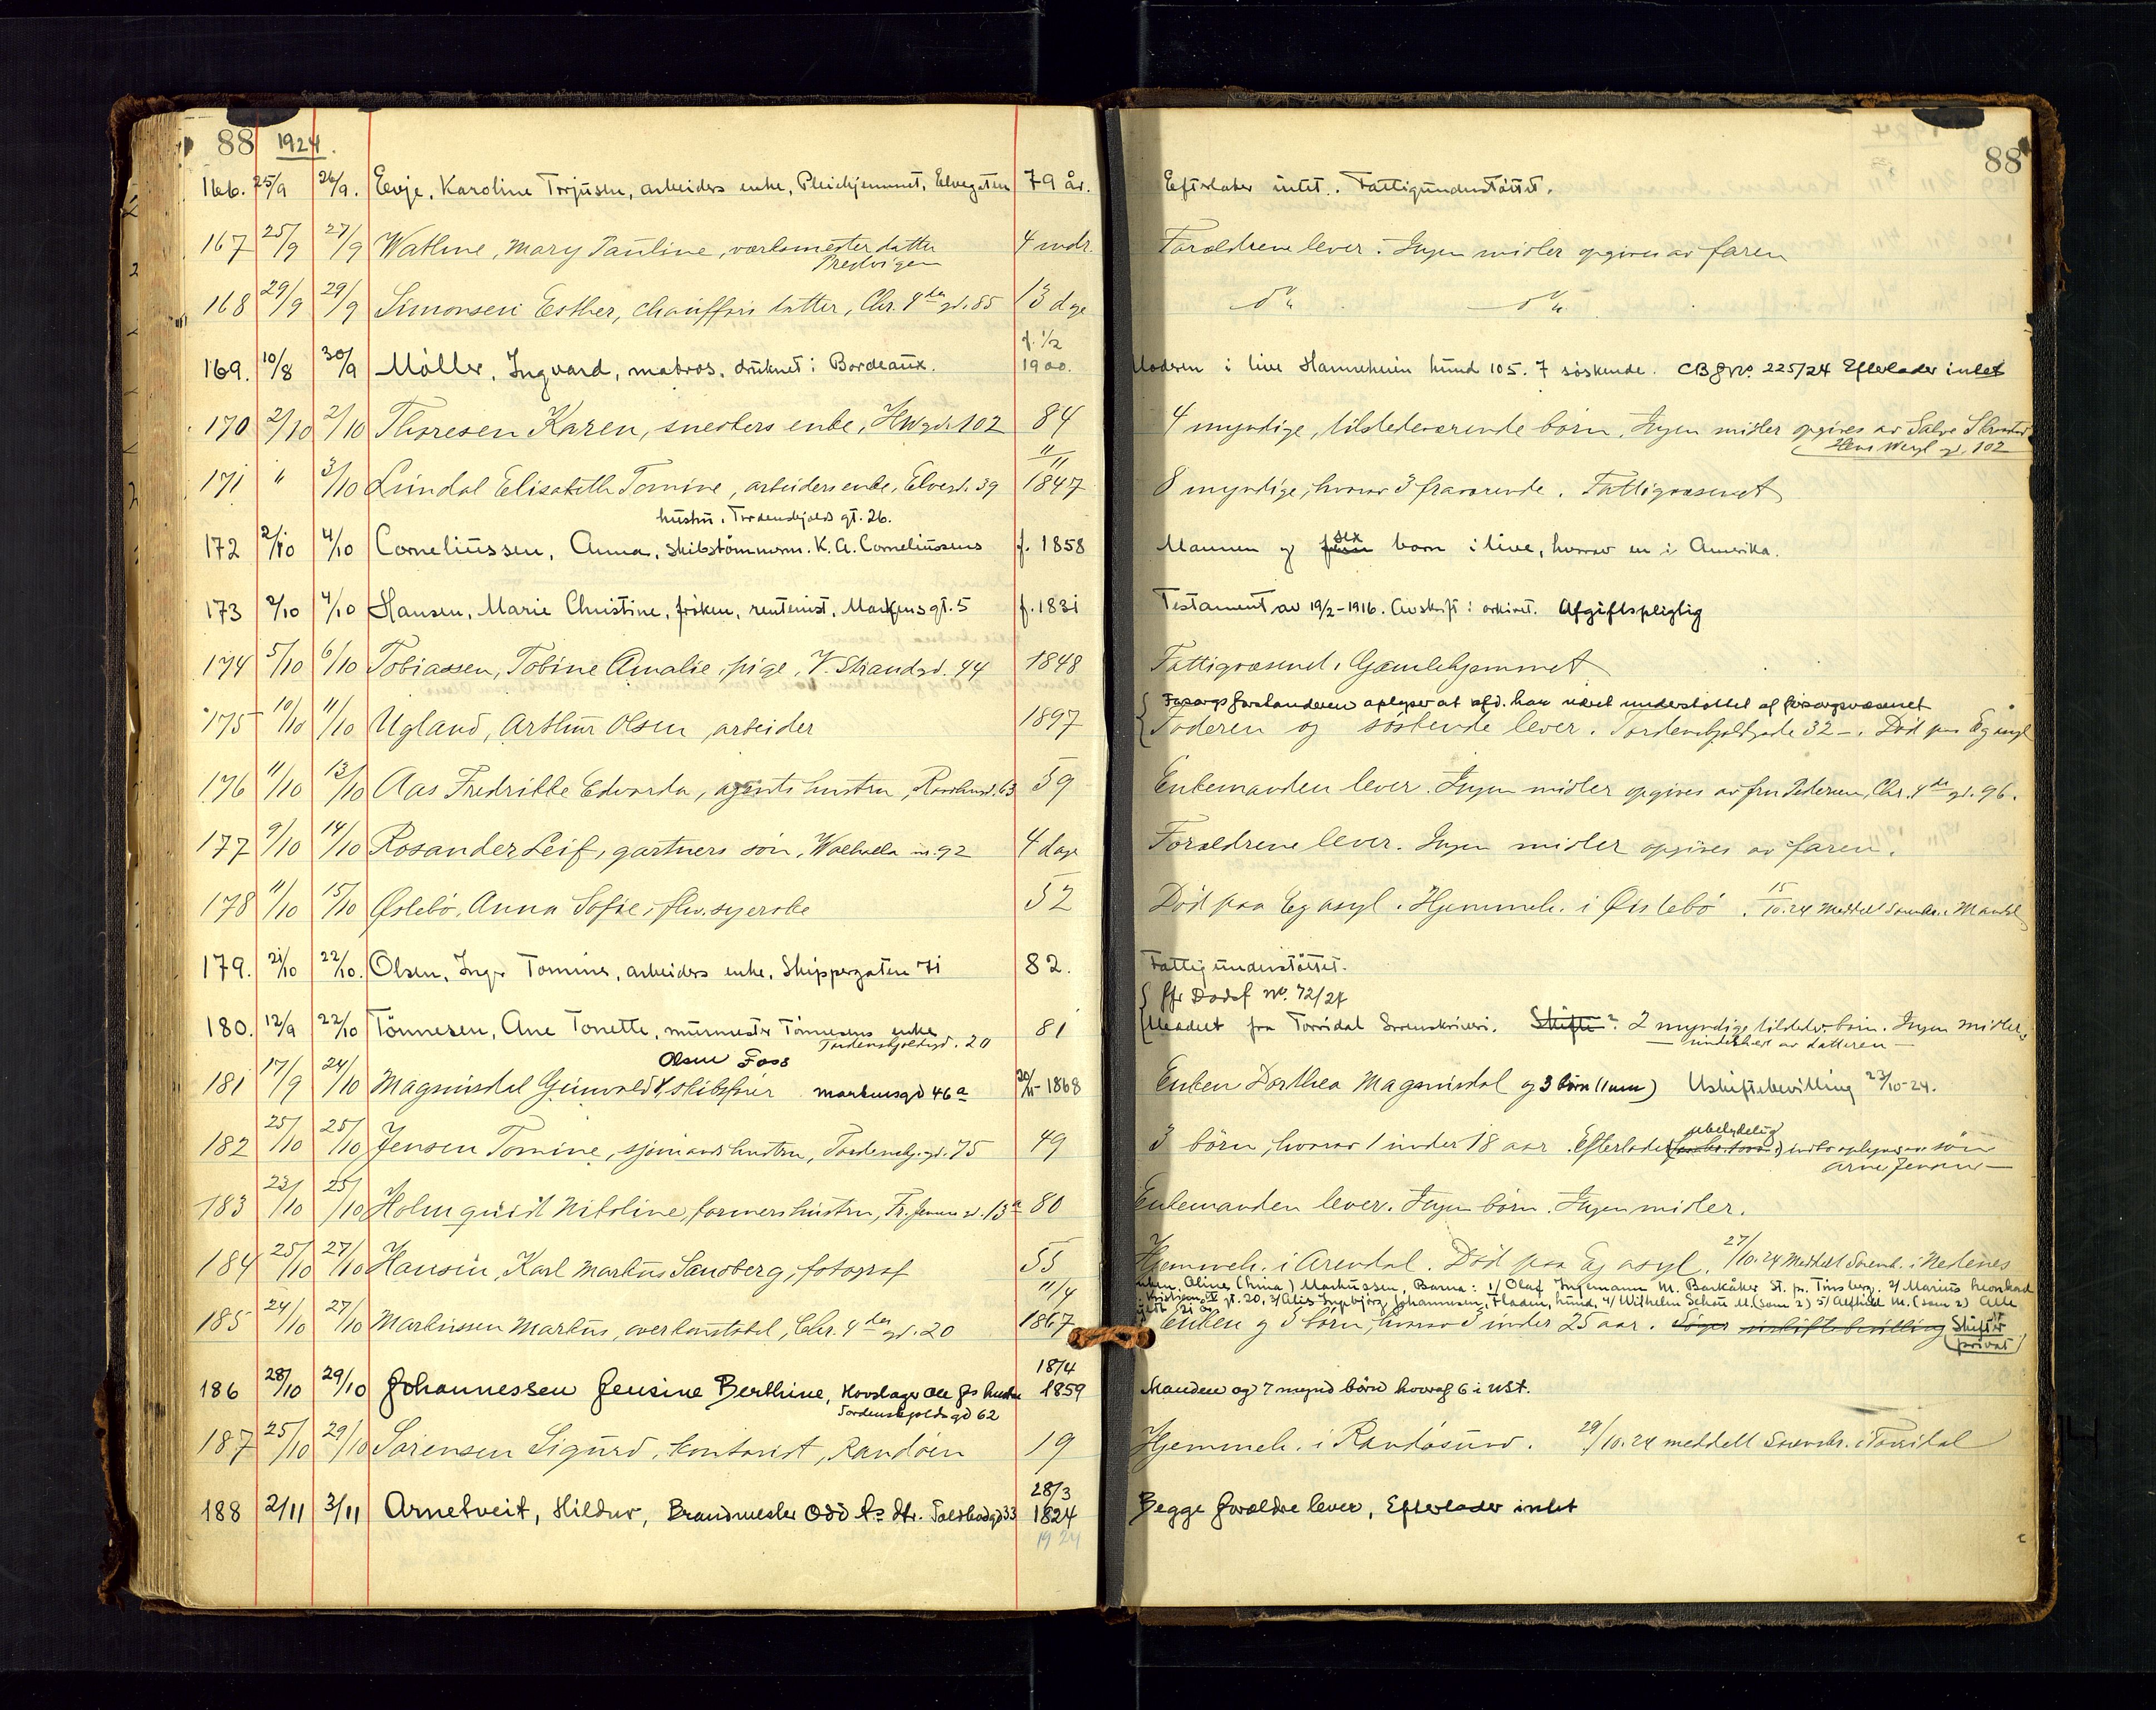 88 1924. 88
166. 25/9 26/9. Eevje, Karoline Torjusen, arbeiders enke, Pleiehjemmet, Elvegaten 79 år. Efterlater intet. Fattigunderstöttet.
167 25/9 27/9 Wathne, Mary Pauline, værksmester datter 4 mdr. Forældrene lever. Ingen midler opgives av faren
Prestvigen
168 29/9 29/9 Simonsen Esther, chaufförs datter, Chr. 4des gd. 85 13 dage do do
f. 1/2
169. 10/8 30/9 Möller, Ingvard, matros, druknet i Bordeaux. 1900. Moderen i live Hannehvien hund 105. 7 söskende. CBg no. 225/24 Efterlader intet
170 2/10 2/10 Thoresen Karen, snekkers enke, HWgd. 102 84 4 myndige, tilstedeværende börn. Ingen midler opgives av Salve
Hens Wergl gd. 102
11/11
171 " 3/10 Lundal Elisabeth Tomine, arbeiders enke, Elvegd. 39 1847 8 myndige, hvorav 3 fraværende. Fattigvæsenet
hustru, Tordenskjolds gt. 26.
172 2/10 4/10 Corneliussen, Anna, skibstömmerm. K. A. Corneliussens f. 1858 Mannen og fem sex barn i live, hvorav en i Amerika.
173 2/10 4/10 Hansen, Marie Christine, fröken, rentenist, Markensgt. 5 f. 1831 Testament av 19/2-1916. Avskrift i arkivet. Afgiftspligtig
174 5/10 6/10 Tobiassen, Tobine Amalie, pige, V. Strandgd. 44 1848 Fattigvæsenet. Gamlehjemmet
Forsorgsforstanderen oplyser at afd. har været understöttet af forsorgsvæsenet
175 10/10 11/10 Ugland, Arthur Olsen, arbeider 1897 Foderen og söskende lever. Tordenskjoldgade 32 -. Död paa Eg asyl
176 11/10 13/10 Aas Fredrikke Edvarda, agents hustru, Raadhusd. 63 59 Enkemanden lever. Ingen midler opgives av fru Pedersen, Chr. 4des gd. 96.
177 9/10 14/10 Rosander Leif, gartners sön, Walhalla nr. 92 4 dage Forældrene lever. Ingen midler opgives av faren.
178 11/10 15/10 Öslebö, Anna Sofie, fhv. syerske 52 Död paa Eg asyl. Hjemmeh. i Öislebö. 15/10.24 meddelt Sorenskr. i Mandal
179. 21/10 22/10. Olsen, Inger Tomine, arbeiders enke, Skippergaten 71 82. Fattigunderstöttet.
jfr Dödsf No. 72/24
180. 12/9 22/10 Tönnesen, Ane Tonette, murmester Tönnesens enke 81 Meddelt fra Torridal Sorenskriveri. Skifte? 2 myndige tilstedev. börn. Ingen midler
Tordenskjoldsgd. 20 underskrevet av datteren -
Olsen Foss
181 17/9 24/10 Magnusdal Gunvald, skibsförer markensgd 46a 20/11-1868 Enken Dorthea Magnusdal og 3 börn (1 um) Uskiftebevilling 23/10-24.
ubetydelig
182 25/10 25/10 Jensen Tomine, sjömands hustru, Tordenskj. gd. 75 49 3 börn, hvorav 1 under 18 aar. Efterlader indbo oplyses av sön
Arne Jensen -
183 23/10 25/10 Holmquist Nikoline, formers hustru, Fr. gd. 13a 80 Enkemanden lever. Ingen börn. Ingen midler.
184 25/10 27/10 Hansen, Karl Markus Sandberg, fotograf 55 Hjemmeh. i Arendal. Död paa Eg asyl. 27/10.24 meddelt Sorensk. i Nedenes
11/4 Enken, Aline (Trina) Markussen, Barna: 1/ Olaf Ingemann M. Barkåker St. pr. Tönsberg. 2/ Marius Leonhard
Kristian IV gt. 20, 3/ Alis Ingebjörg Johannesen, Fladen, hund, 4/ Wilhelm Schou M (som 2) 5/ Alfhild M. (som 2) Alle
185 24/10 27/10 Markussen Markus, overkonstabel, Chr. 4des gd. 20 1867 Enken og 5 börn, hvorav 3 under 25 aar. Söger uskiftebevilling Skifter
privat
18/4
186 28/10 29/10 Johannessen Jensine Berthine, Hovslager Ole Js hustru 1859 Manden og 7 mynd börn hvoraf 6 i USt.
Tordenskjoldsgd 62
187 25/10 29/10 Sörensen Sigurd, kontorist, Randöen 19 Hjemmeh. i Randösund. 29/10.24 meddelt Sorenskr. i Torridal
28/3
188 2/11 3/11 Arnetveit, Hildur, Brandmester Odd As dtr. Toldbodgd 33 1824 Begge forældre lever, Efterlader intet
1924